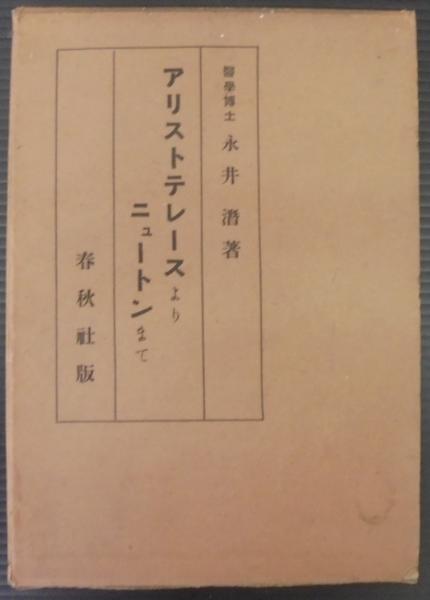 醫學博士 永井潛著
アリストテレースより
ニュートンまて
春秋社版